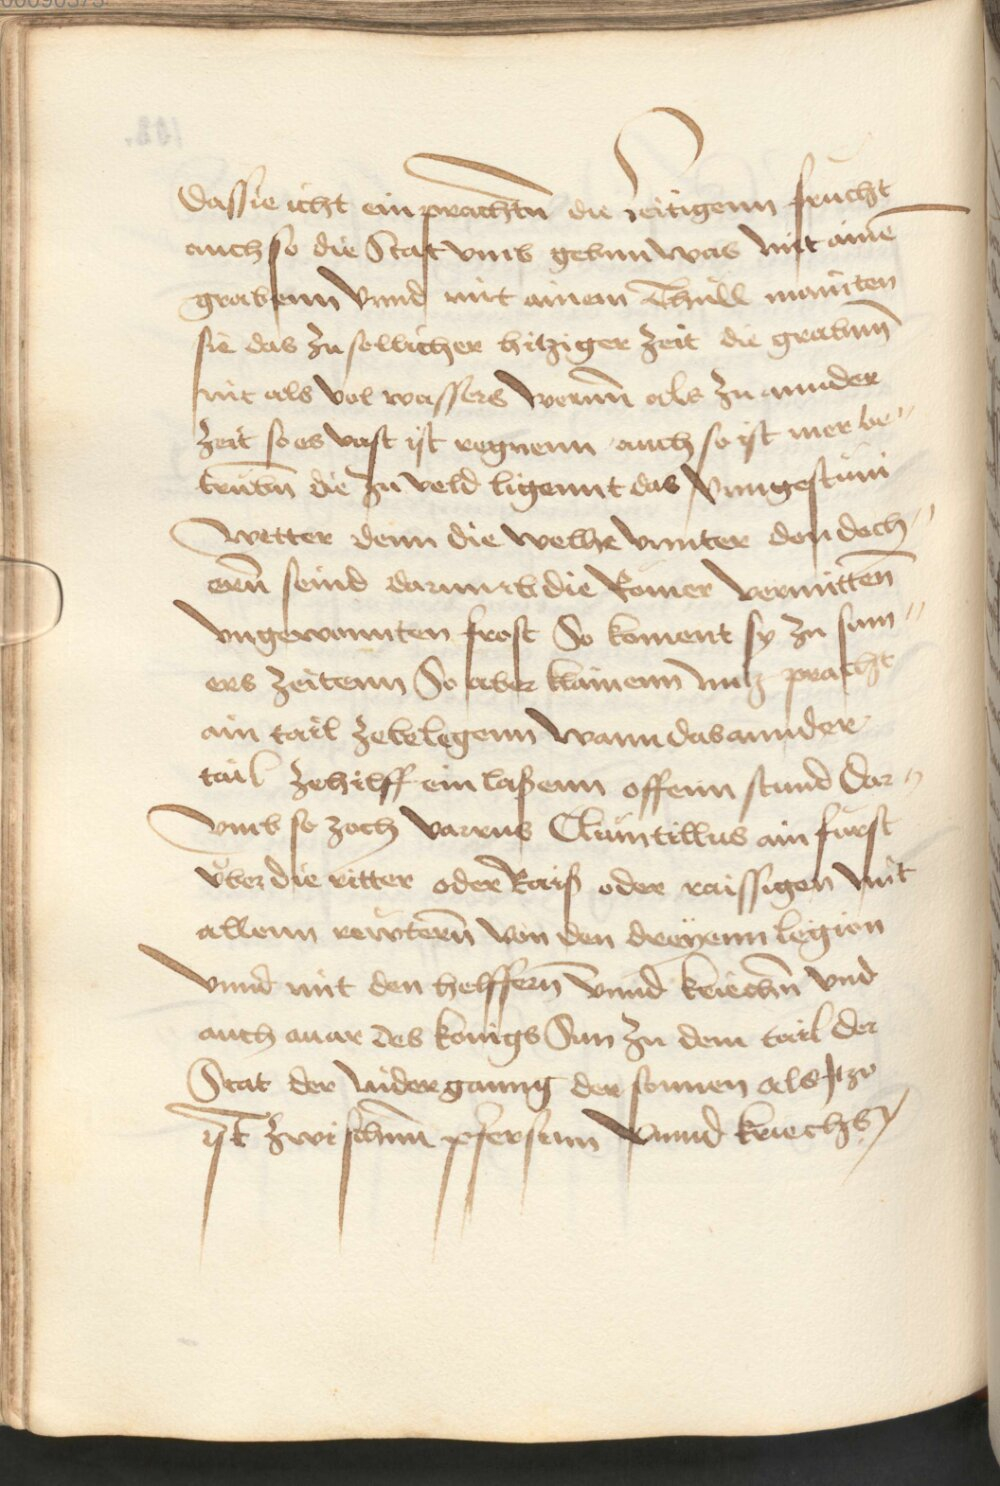 dassie icht ein prachtn̄ die zeitigenn frücht
auch so die Stat vmb gebnn was mit ainē
grabenn Vnnd mit ainem Thüll mainten
sie das zu sollicher hitziger zeit die grabnn̄
nit als vol wassers wernn̄ als zu annder
zeit so es vast ist regnenn auch so ist mer be"
trübn̄ die zu veld ligennt das Vnngestüm
Wetter denn die welhe Vnnter den dech"
ern̄ seind darumb die Römer Vermitten̄
Vngewonnten frost So koment sy zu sum"
ers zeitenn So aber klainenn̄ nutz pracht
ain tail zebelegenn Wann das annder
tail zehilff ein laßenn offenn stund Dar"
Vmb so zoch Varrus Cluentillus ain fürst
vͦber die ritter oder Raiß oder raissigen Mit
allenn rewtern̄ Von den dreyenn legion
Vnnd mit den helffern̄ Vnnd kriechn̄ Vnd
auch auar des konigs Sun zu dem tail der
Stat der Niderganng der sonnen als itzo
ist zwischnn̄ pfersenn Vnnd kriechs